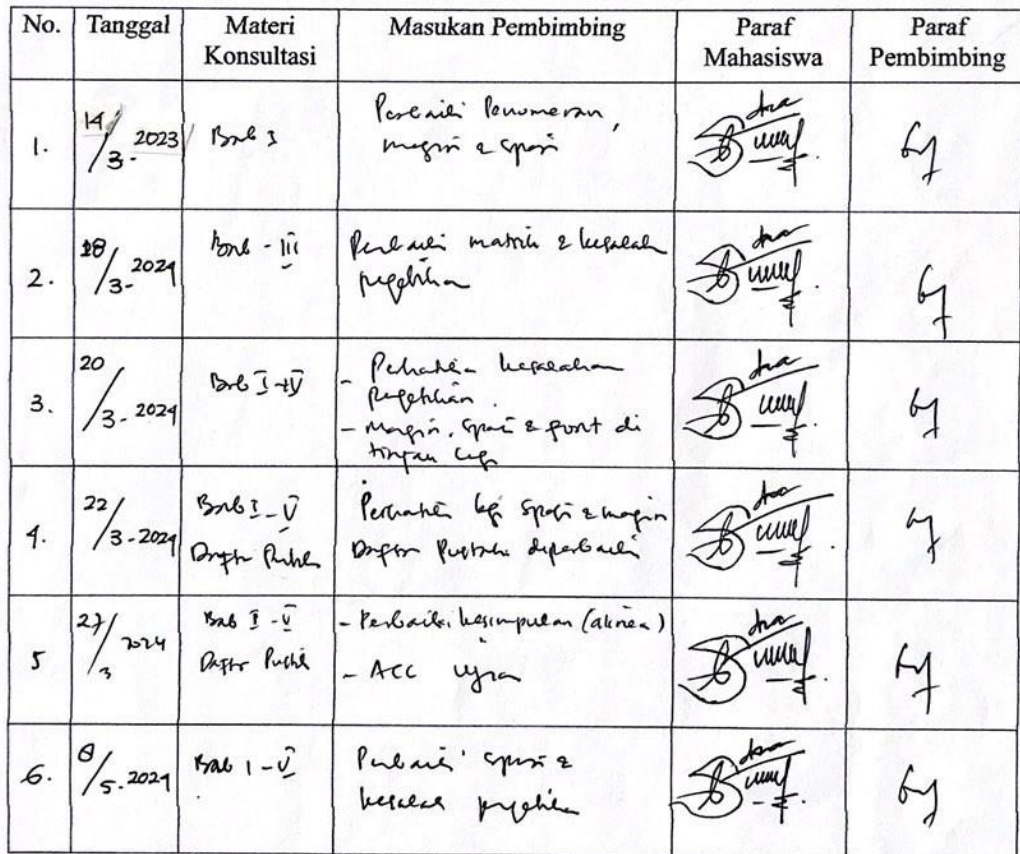 No. Tanggal Materi Konsultasi Masukan Pembimbing Paraf Mahasiswa Paraf Pembimbing
1. 14/3-2023 Bab I Perbaiki Penomeran,
margin & spasi
2. 18/3-2024 Bab - III Perbaiki matrik & kesalahan
pengetikan
3. 20/3-2024 Bab I-V - Perhatikan kesalahan
pengetikan
- margin, spasi & font di
4. 22/3-2024 Bab I-V Perhatikan lagi spasi & margin
Daftar Pustaka Daftar Pustaka diperbaiki
5 27/3 2024 Bab I-V - Perbaiki kesimpulan (alinea)
Daftar Pustaka - ACC ujian
6. 8/5-2024 Bab I-V Perbaiki spasi &
kesalahan pengetikan